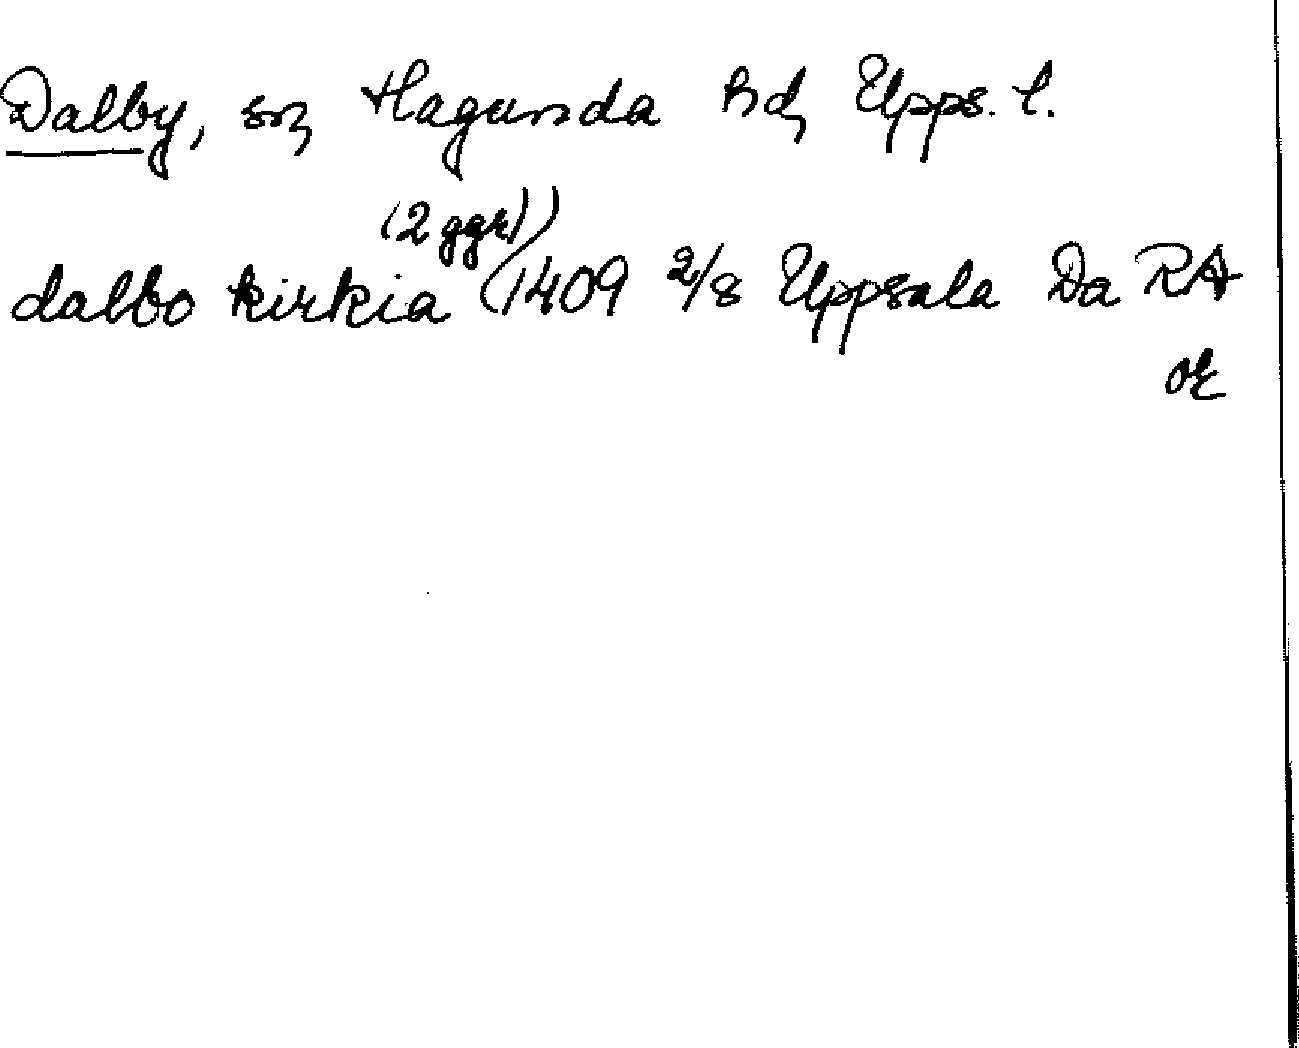 Dalby, sn Hagunda hd Upps. l.
(2 ggr))
dalbo kirkia (1409 2/8 Uppsala Da RA
or